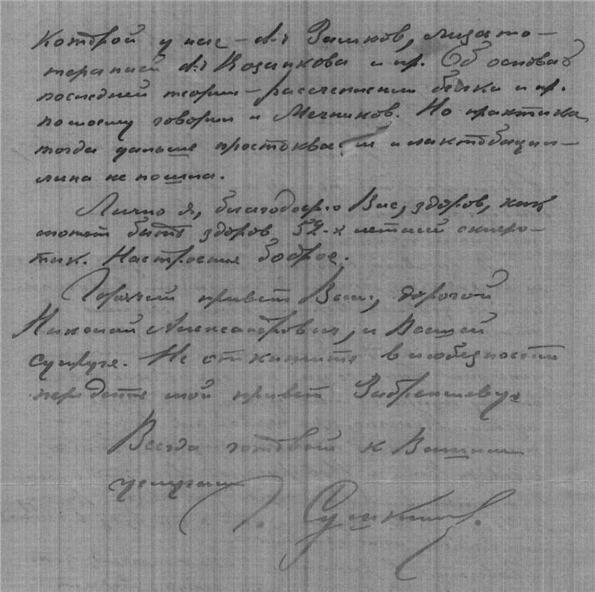 которой у нас – д-р Замков, лизато-
терапией д-р Казакова и пр. Об основах
последней теории – расщеплении белка и пр.
по-моему говорил и Мечников. Но практика
тогда дальше простокваши и лактобацил-
лина не пошла.
Лично я, благодарю Вас, здоров, как
может быть здоров 52-х летний склеро-
тик. Настроение бодрое.
Горячий привет Вам, дорогой
Николай Александрович, и Вашей
супруге. Не откажите в любезности
передать мой привет
Всегда готовый к Вашим
услугам